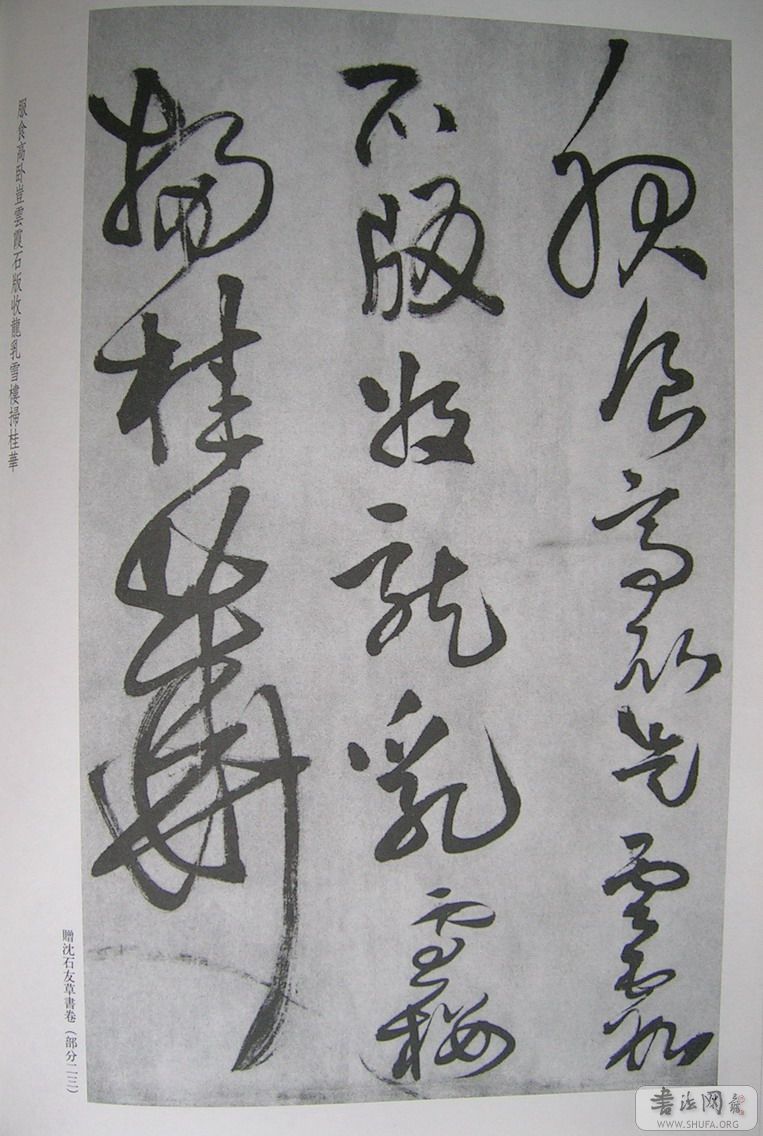 服食高卧豈雲霞
石版收龍乳雪樓
掃桂華
服食高卧豈雲霞石版收龍乳雪樓掃桂華
贈沈石友草書卷（部分二三）
書法网
WWW.SHUFA.ORG